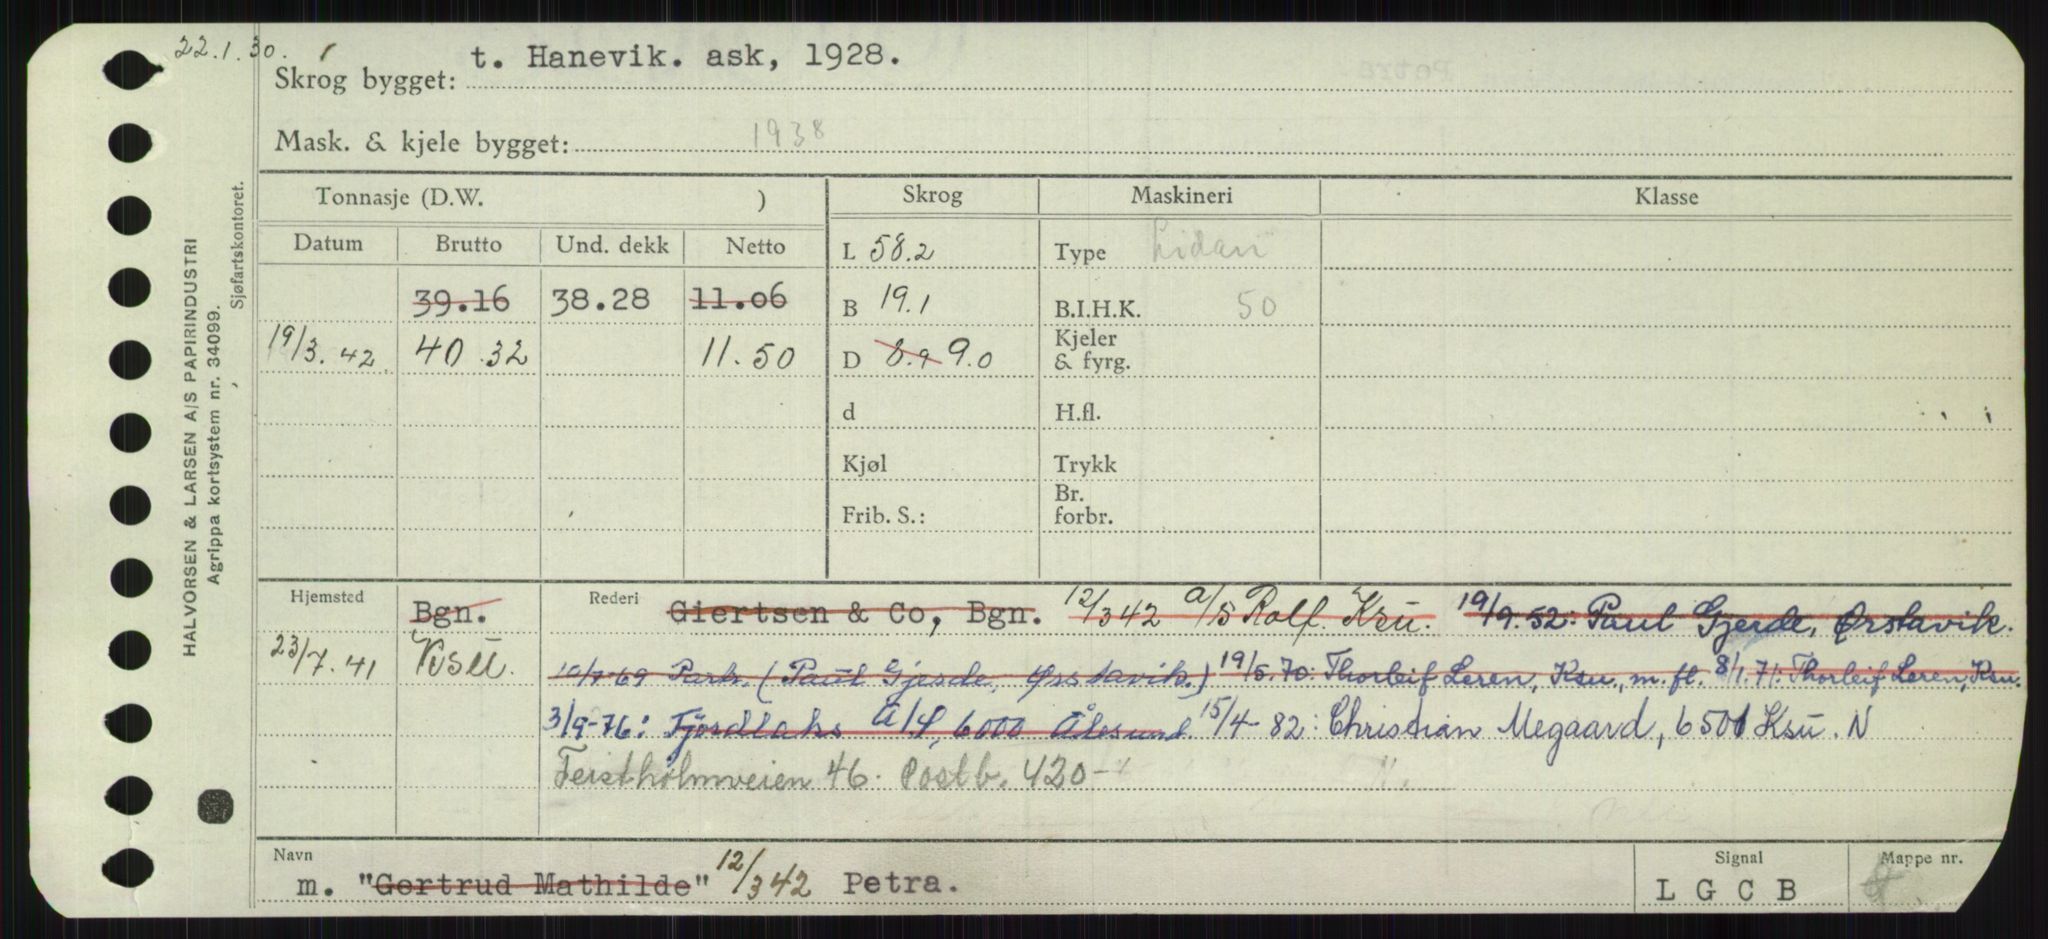 22.1.30.
Skrog bygget: t. Hanevik. ask, 1928.
Mask. & kjele bygget: 1938
Tonnasje (D.W. ) Skrog Maskineri Klasse
Datum Brutto Und. dekk Netto L 58.2 Type Lidan
39.16 38.28 11.06 B 19.1 B.I.H.K. 50
19/3.42 40.32 11.50 D 8.9 9.0 Kjeler & fyrg.
d H.fl.
Kjøl Trykk
Frib. S.: Br. forbr.
Hjemsted Bgn. Rederi Giertsen & Co, Bgn. 12/3 42 A/S Rolf. Ksu. 19/9.52: Paul Gjerde, Ørstavik.
23/7.41 Ksu. (Paul Gjerde, Ørstavik.) 19/5.70: Thorleif Leren, Ksu., m. fl. 8/1.71: Thorleif Leren, Ksu.
3/9-76: Fjordlaks A/S, 6000 Ålesund. 15/4-82: Christian Megaard, 6501 Ksu. N
Feistholmveien 46. Postb. 420-
Navn m. "Gertrud Mathilde" 12/3 42 Petra. Signal L G C B Mappe nr.
HALVORSEN & LARSEN A/S PAPIRINDUSTRI
Agrippa kortsystem nr. 34099.
Sjøfartskontoret.